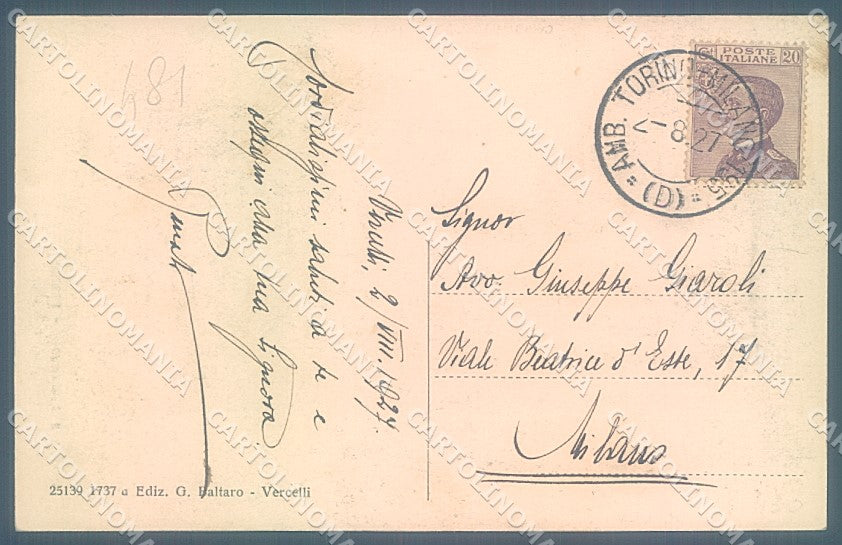 POSTE
ITALIANE 20
AMB. TORINO-MILANO
8.27
(D)
481
Vercelli, 2/VIII.1927.
Cordialissimi saluti a te e
ossequi alla tua Signora
Signor
Avv. Giuseppe Giaroli
Viale Beatrice d'Este, 17
Milano
25139 1737 a Ediz. G. Baltaro - Vercelli
CARTOLINOMANIA